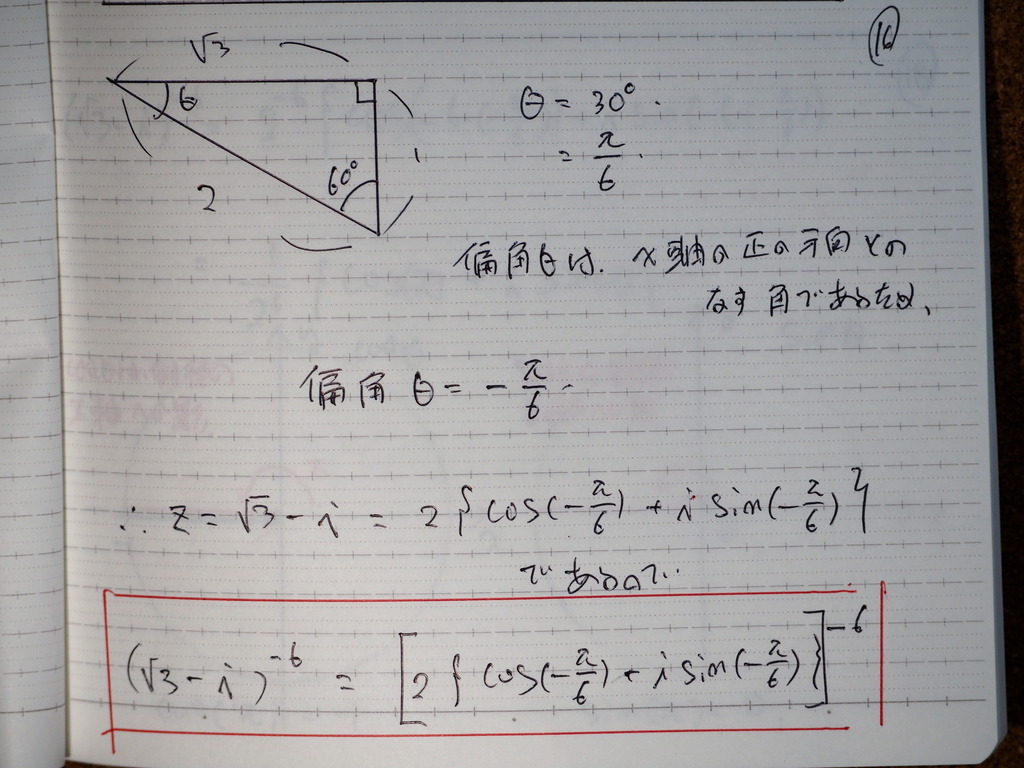 ⑯
√3
θ
2
60°
1
θ = 30°.
= π/6.
偏角θは、x軸の正の方向との
なす角であるため、
偏角 θ = - π/6.
∴ z = √3 - i = 2{cos(-π/6) + i sin(-π/6)}
であるので…
(√3 - i)^-6 = [2{cos(-π/6) + i sin(-π/6)}]^-6